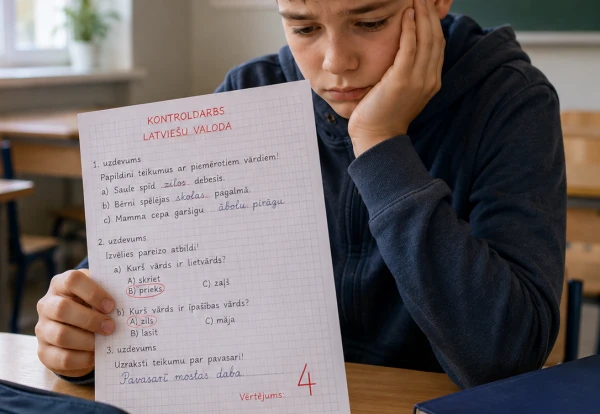 KONTROLDARBS
LATVIEŠU VALODA
1. uzdevums
Papildini teikumus ar piemērotiem vārdiem!
a) Saule spīd zilos debesīs.
b) Bērni spēlējas skolas pagalmā.
c) Mamma cepa garšīgu ābolu pīrāgu
2. uzdevums
Izvēlies pareizo atbildi!
a) Kurš vārds ir lietvārds?
A) skriet
B) prieks C) zaļš
b) Kurš vārds ir īpašības vārds?
A) zils C) māja
B) lasīt
3. uzdevums
Uzraksti teikumu par pavasari!
Pavasarī mostas daba
Vērtējums: 4